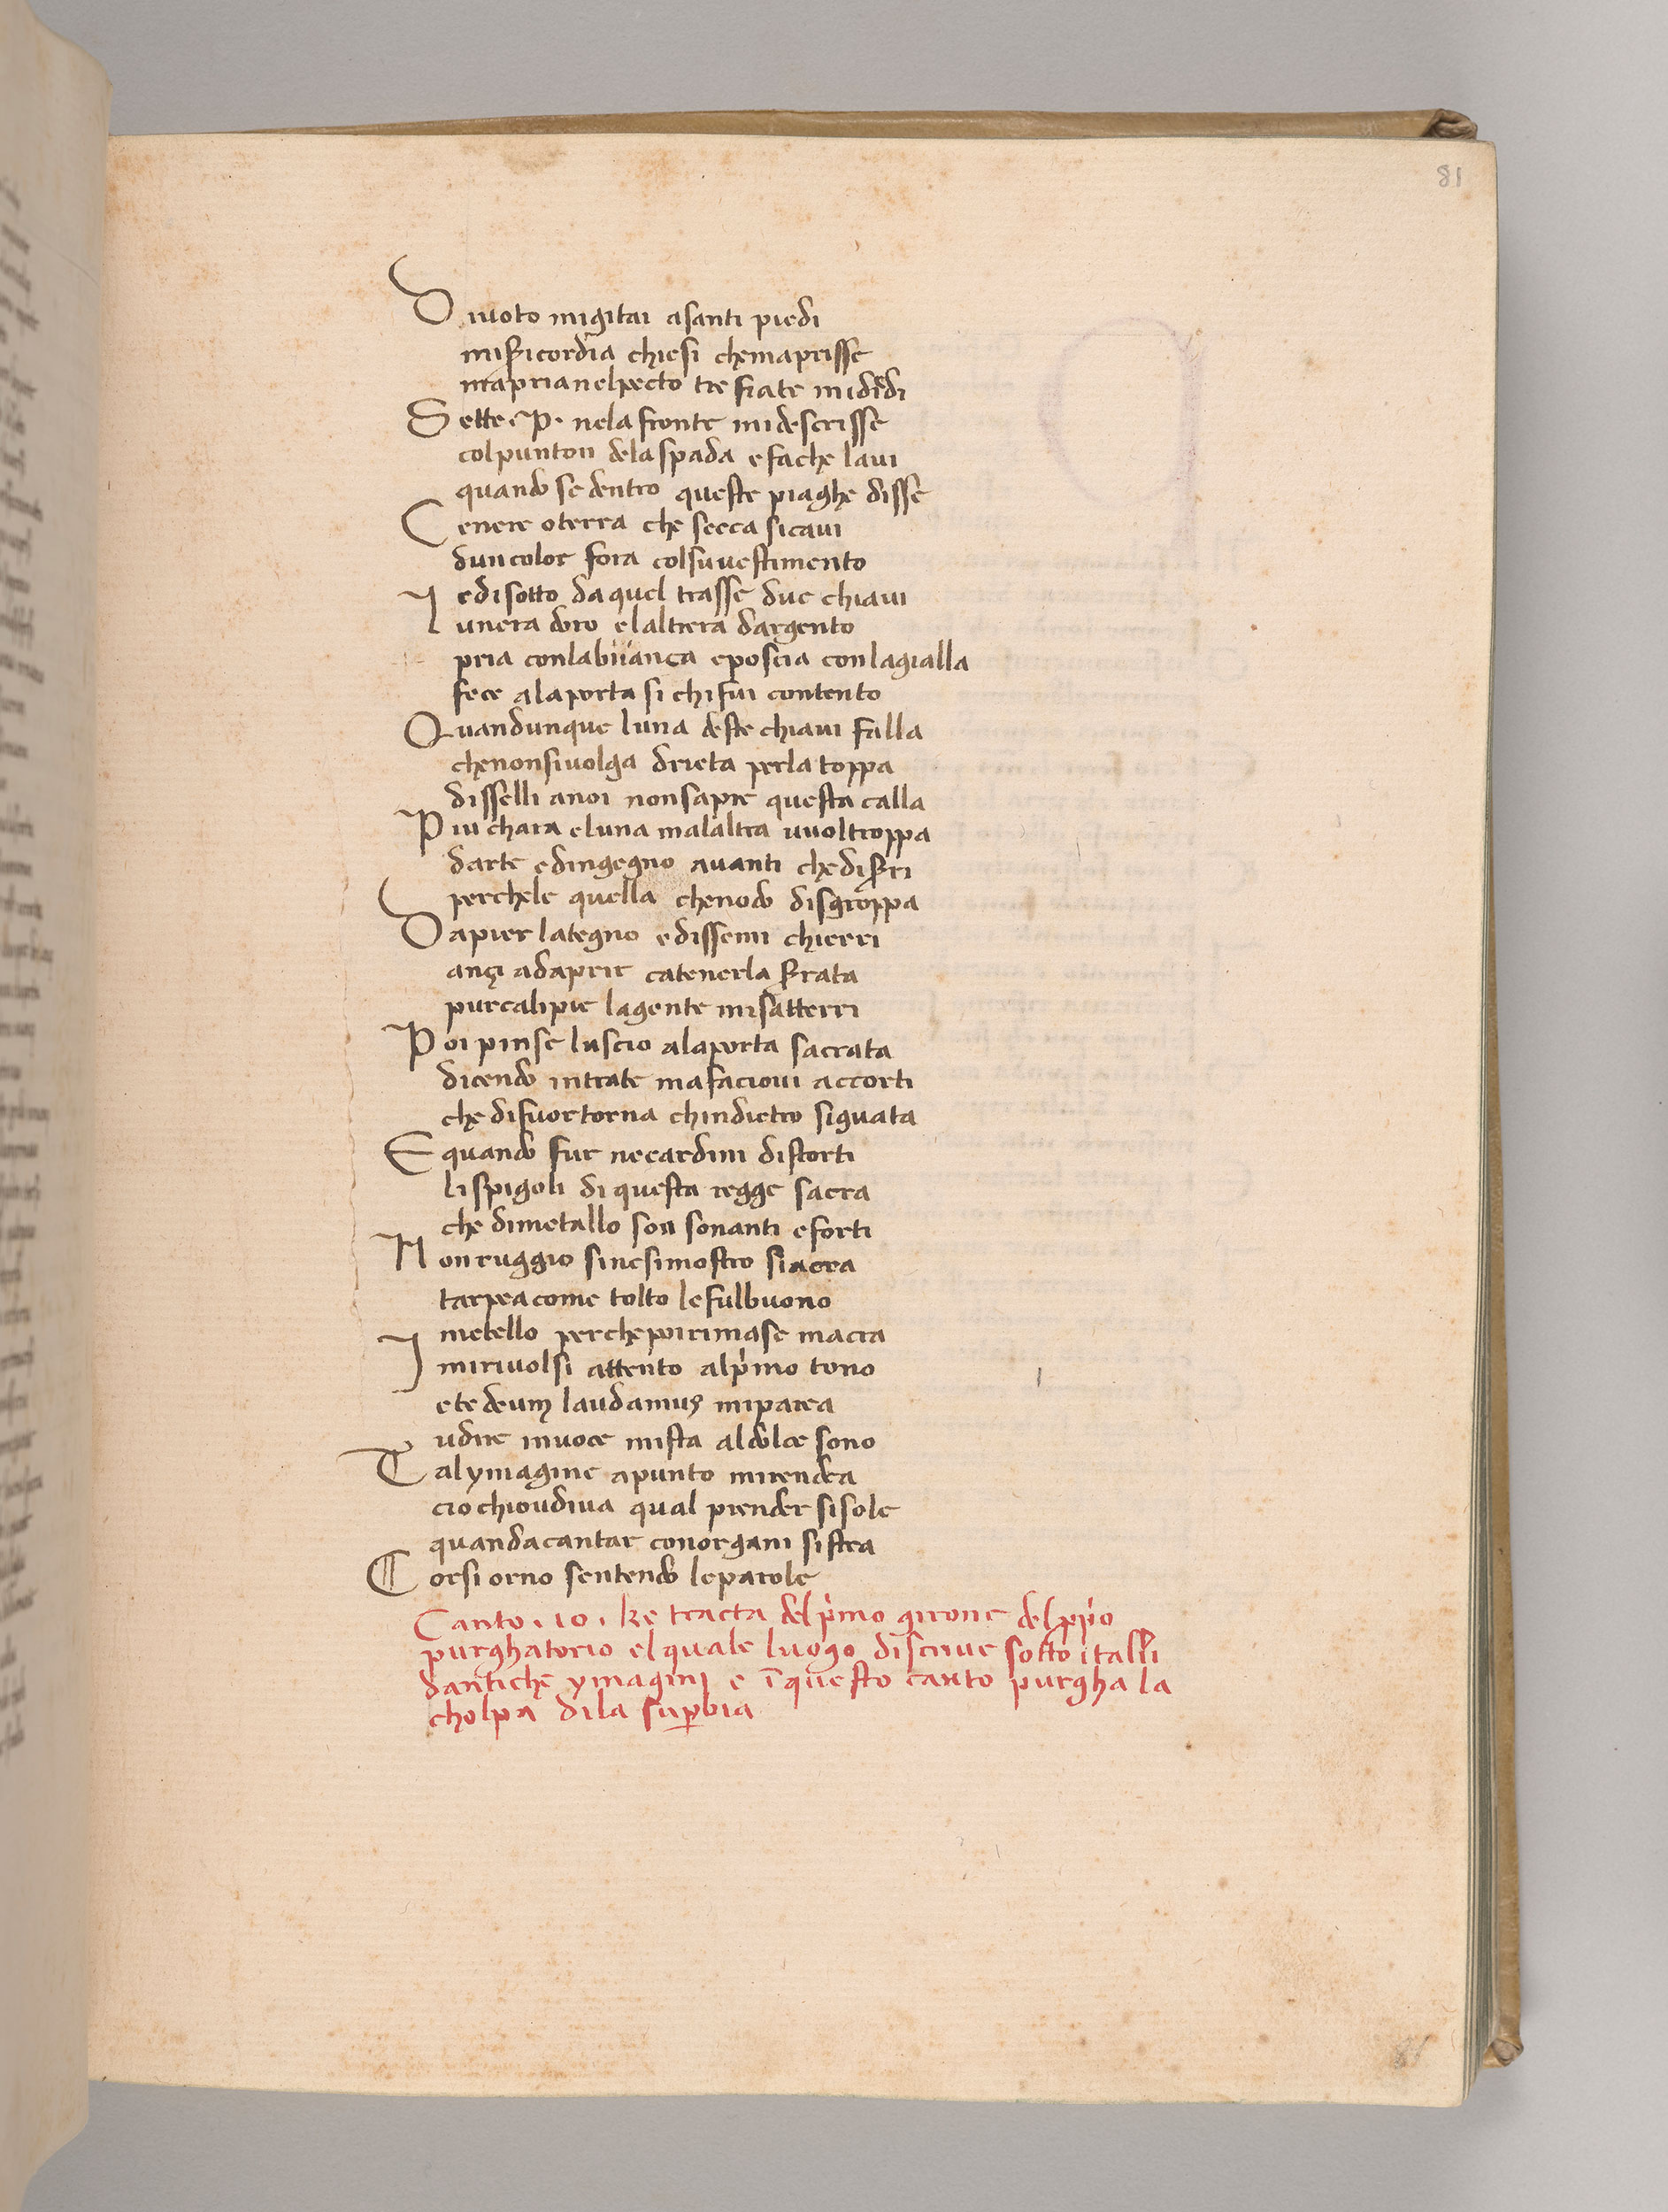 81
Diuoto migitai asanti piedi
misericordia chiesi chemaprisse
mapria nelpecto tre fiate mididedi
Sette .P. nela fronte midescrisse
colpunton delaspada efache laui
quando se dentro queste piaghe disse
Cenere oterra che secca sicaui
duncolor fora colsuuestimento
edisotto daquel trasse due chiaui
Iunera doro elaltrera dargento
pria conlabianca eposcia conlagialla
fece alaporta si chifui contento
Quandunque luna deste chiaui falla
chenonsiuolga drieta perla toppa
disselli anoi nonsapre questa calla
Piu chara eluna malaltra uuoltroppa
darte edingegno auanti chediserri
perchele quella chenodo disgroppa
Dapier lategno edissemi chierri
ançi adaprir catenerla serrata
purcalipie lagente misatterri
Poi pinse luscio alaporta sacrata
dicendo intrate mafacioui accorti
che difuortorna chindietro siguata
Equando fur necardini distorti
lispigoli di questa regge sacra
che dimetallo son sonanti eforti
Non ruggio sinesimostro siacra
tarpea come tolto lefulbuono
metello perchepoirimase macra
Imiriuolsi attento alp̍mo tono
ete deum laudamus miparea
udire inuoce mista aldolce sono
Talymagine apunto mirendea
ciochioudiua qual prender sisole
quandacantar conorgani sistea
Corsi orno sentendo leparole
Canto . 10 . ke tracta delp̍mo girone delpp̍o
purghatorio elquale luogo discriue sotto italli
dantiche ymagini e ĩ questo canto purgha la
cholpa dila sup̱bia
81